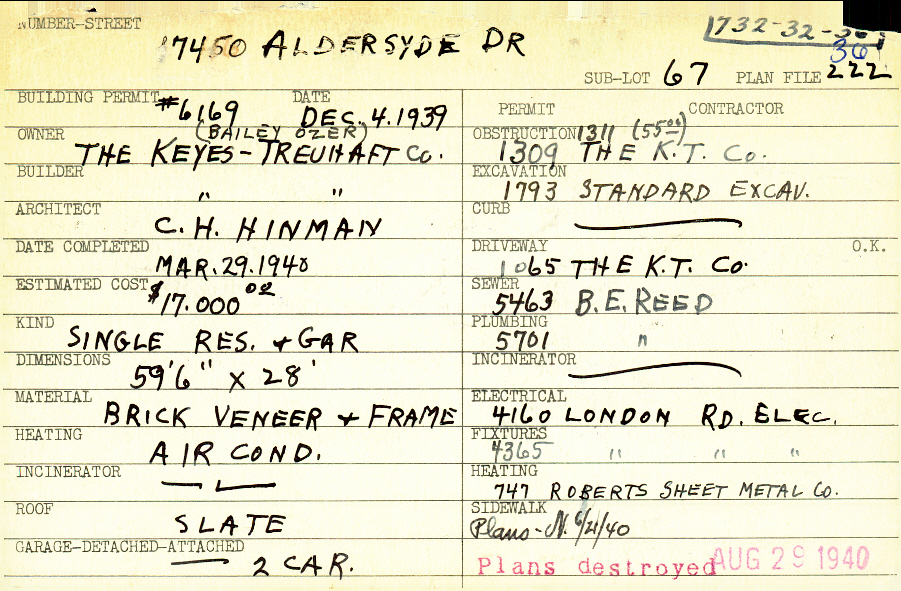 NUMBER-STREET
17450 ALDERSYDE DR
732-32-
36
SUB-LOT 67 PLAN FILE 222
BUILDING PERMIT #6169 DATE DEC. 4. 1939
OWNER (BAILEY OZER)
THE KEYES-TREUHAFT Co.
BUILDER " "
ARCHITECT
C. H. HINMAN
DATE COMPLETED
MAR. 29. 1940
ESTIMATED COST $17.000 00
KIND
SINGLE RES. + GAR
DIMENSIONS
59'6" X 28'
MATERIAL
BRICK VENEER + FRAME
HEATING
AIR COND.
INCINERATOR
ROOF
SLATE
GARAGE-DETACHED-ATTACHED
2 CAR.
PERMIT CONTRACTOR
OBSTRUCTION 1311 (55 00)
1309 THE K.T. Co.
EXCAVATION
1793 STANDARD EXCAV.
CURB
DRIVEWAY O.K.
1065 THE K.T. Co.
SEWER
5463 B.E. REED
PLUMBING
5701 "
INCINERATOR
ELECTRICAL
4160 LONDON RD. ELEC.
FIXTURES
4365 " " "
HEATING
747 ROBERTS SHEET METAL Co.
SIDEWALK
Plans-N. 6/21/40
Plans destroyed AUG 29 1940